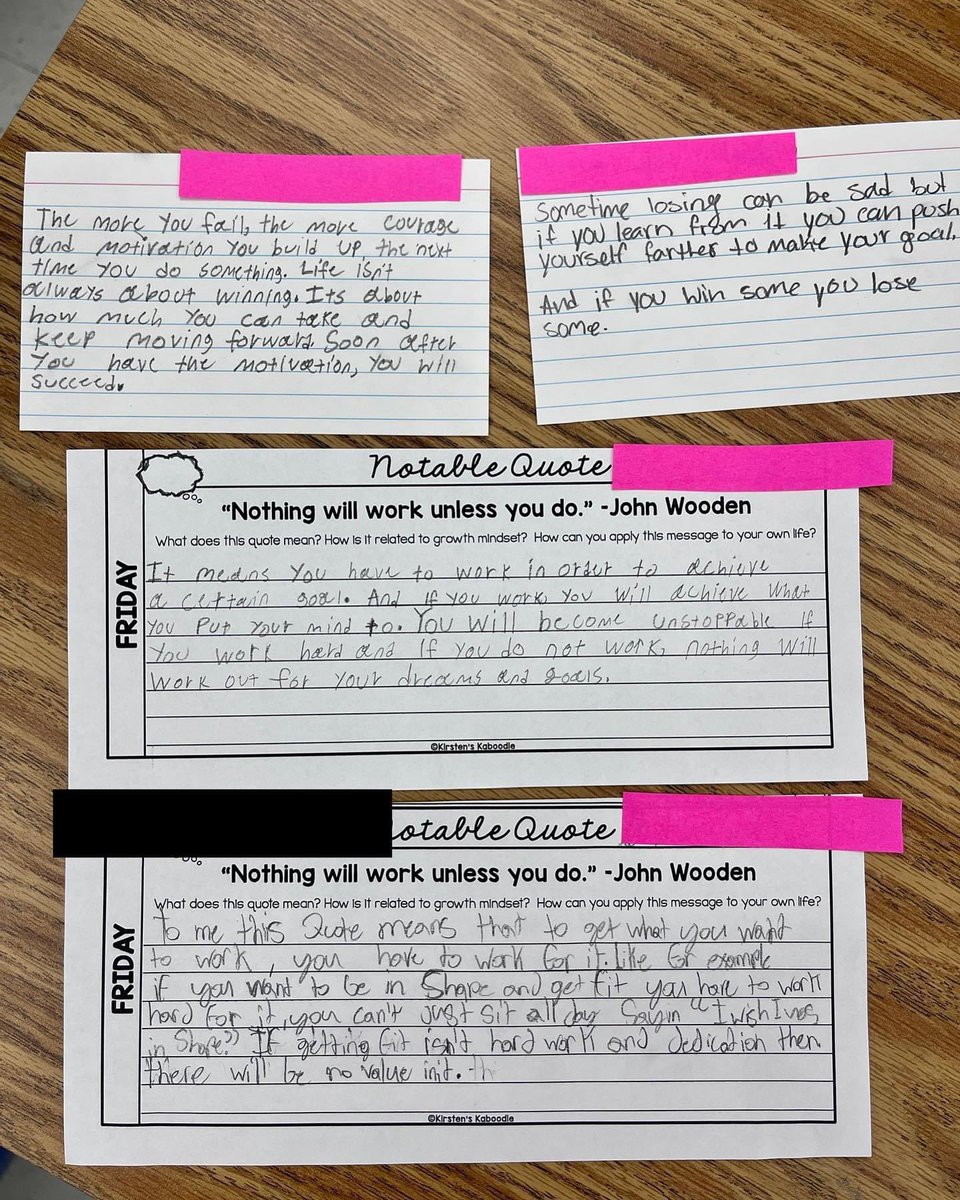 The more you fail, the more courage
and motivation you build up, the next
time you do something. Life isn't
always about winning. Its about
how much you can take and
keep moving forward. Soon after
you have the motivation, you will
succeed.
Sometime losing can be sad but
if you learn from it you can push
yourself farther to make your goal.
And if you win some you lose
some.
Notable Quote
"Nothing will work unless you do." -John Wooden
What does this quote mean? How is it related to growth mindset? How can you apply this message to your own life?
FRIDAY
It means you have to work in order to achieve
a certain goal. And if you work, you will achieve what
you put your mind to. You will become unstoppable if
you work hard and if you do not work, nothing will
work out for your dreams and goals.
©Kirsten's Kaboodle
otable Quote
"Nothing will work unless you do." -John Wooden
What does this quote mean? How is it related to growth mindset? How can you apply this message to your own life?
FRIDAY
To me this Quote means that to get what you want
to work, you have to work for it. Like for example
if you want to be in Shape and get fit you have to work
hard for it, you can't just sit all day Sayin "I wish I was
in Shape." If getting fit isn't hard work and dedication then
there will be no value in it. th
©Kirsten's Kaboodle